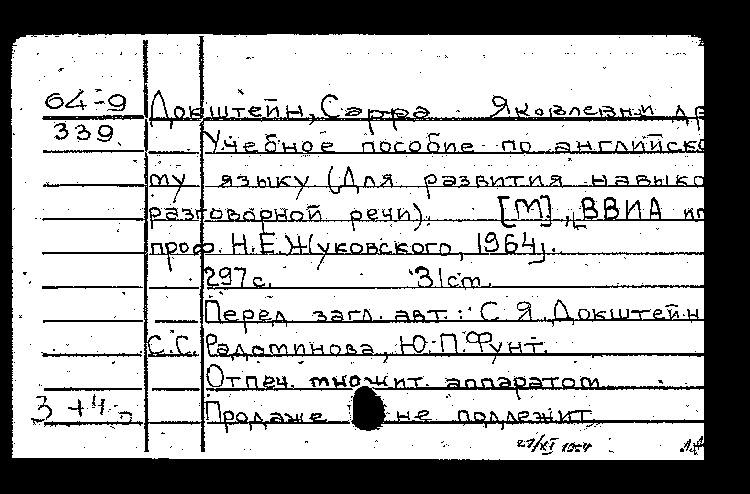 64-9 Докштейн, Сарра Яковлевна и др
339 Учебное пособие по английско
му языку (Для развития навыко
разговорной речи). [М], ВВИА им
проф. Н.Е.Жуковского, 1964].
297 с. 31 см.
Перед загл. авт.: С.Я.Докштейн
С.С. Радотинова, Ю.П.Фунт.
Отпеч. множит. аппаратом
Продаже не подлежит
27/XI 1964